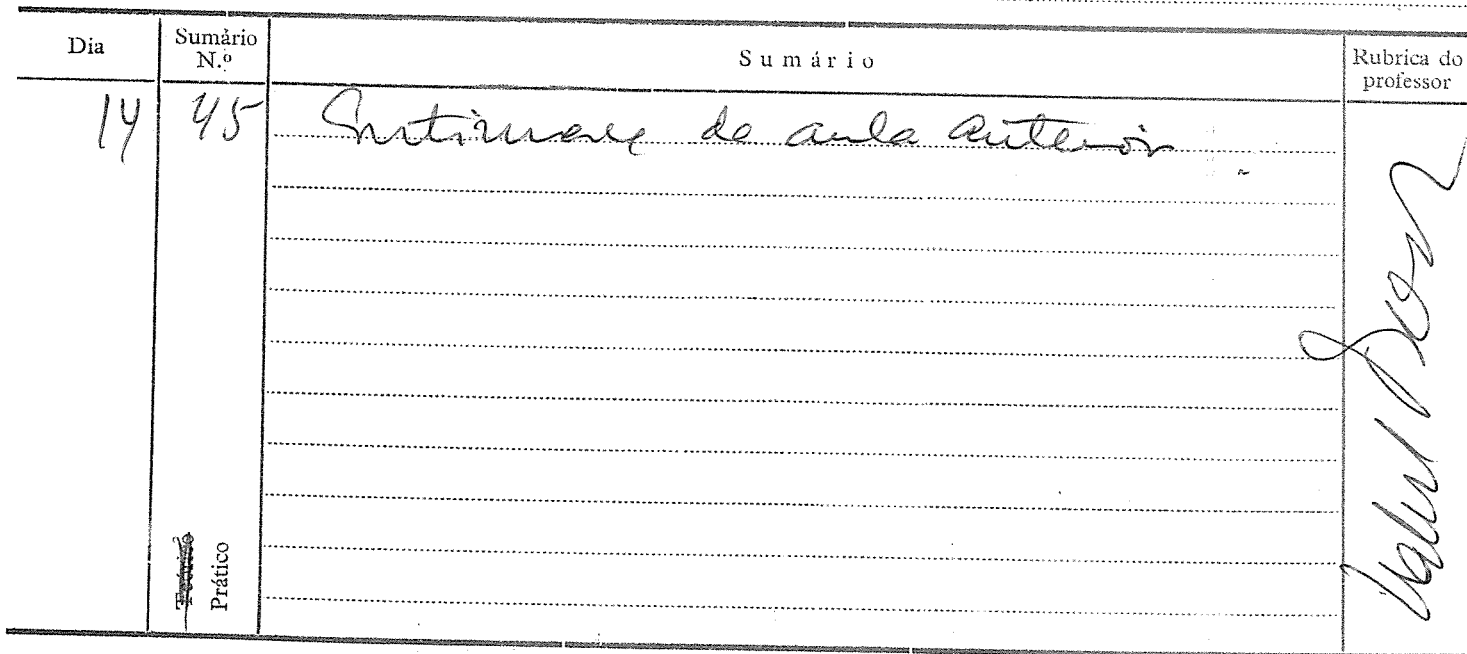 Dia
Sumário
N.º
Sumário
Rubrica do
professor
14
45
Continuação da aula anterior.
Teórico
Prático